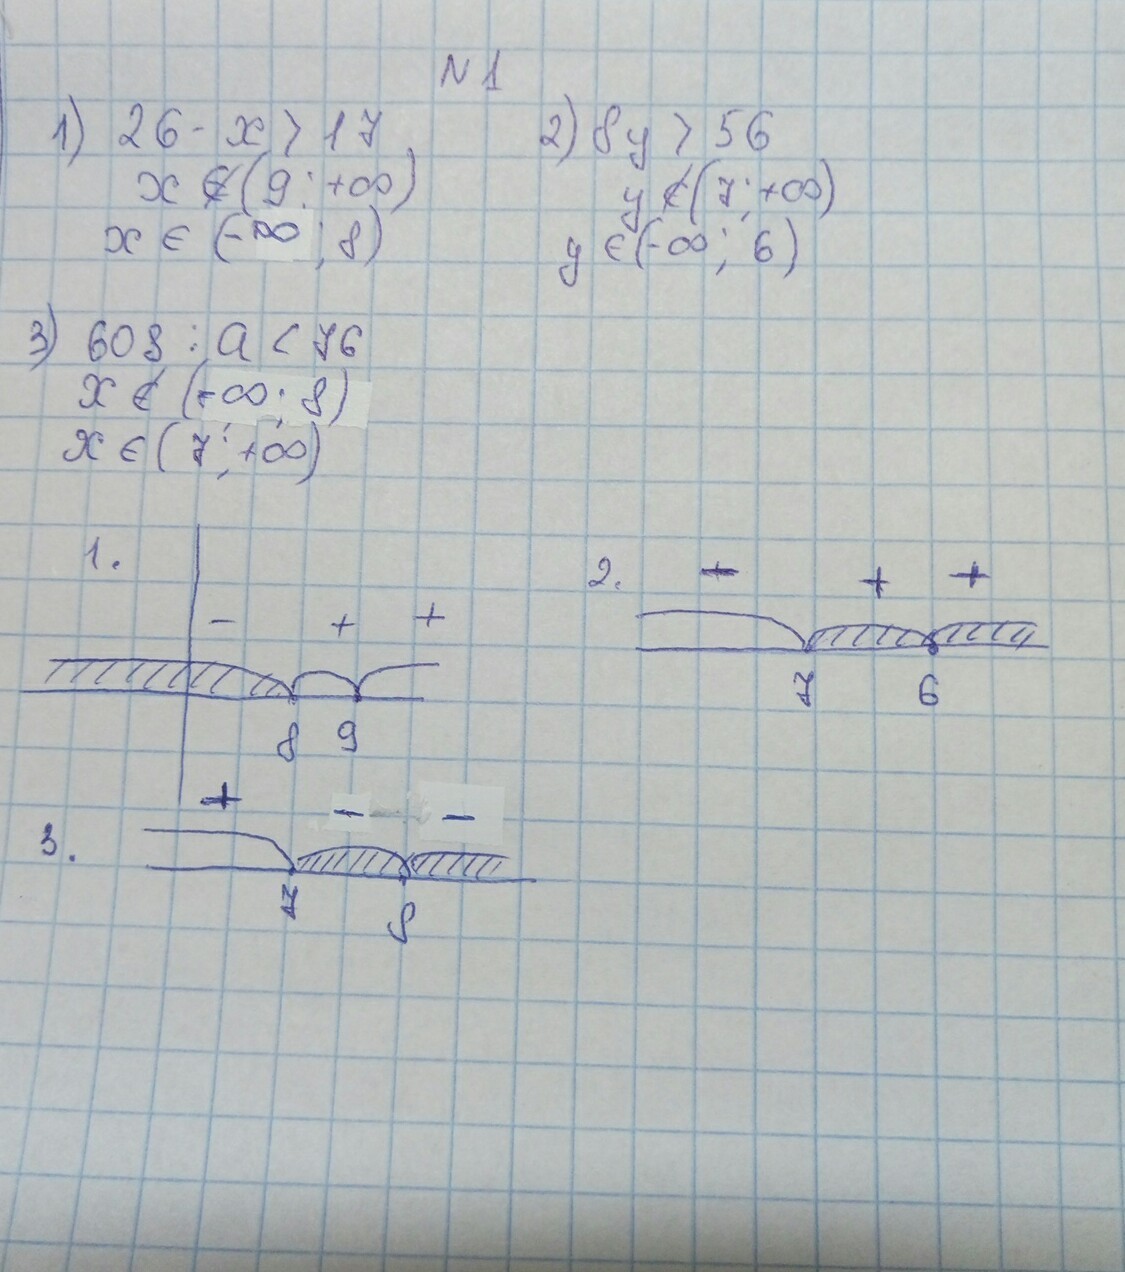 N 1
1) 26 - x > 17
x ∉ (9; +∞)
x ∈ (-∞; 8)
2) 8y > 56
y ∉ (7; +∞)
y ∈ (-∞; 6)
3) 608 : a < 76
x ∉ (-∞; 8)
x ∈ (7; +∞)
1.
- + +
8 9
2.
- + +
7 6
3.
+ - -
7 8